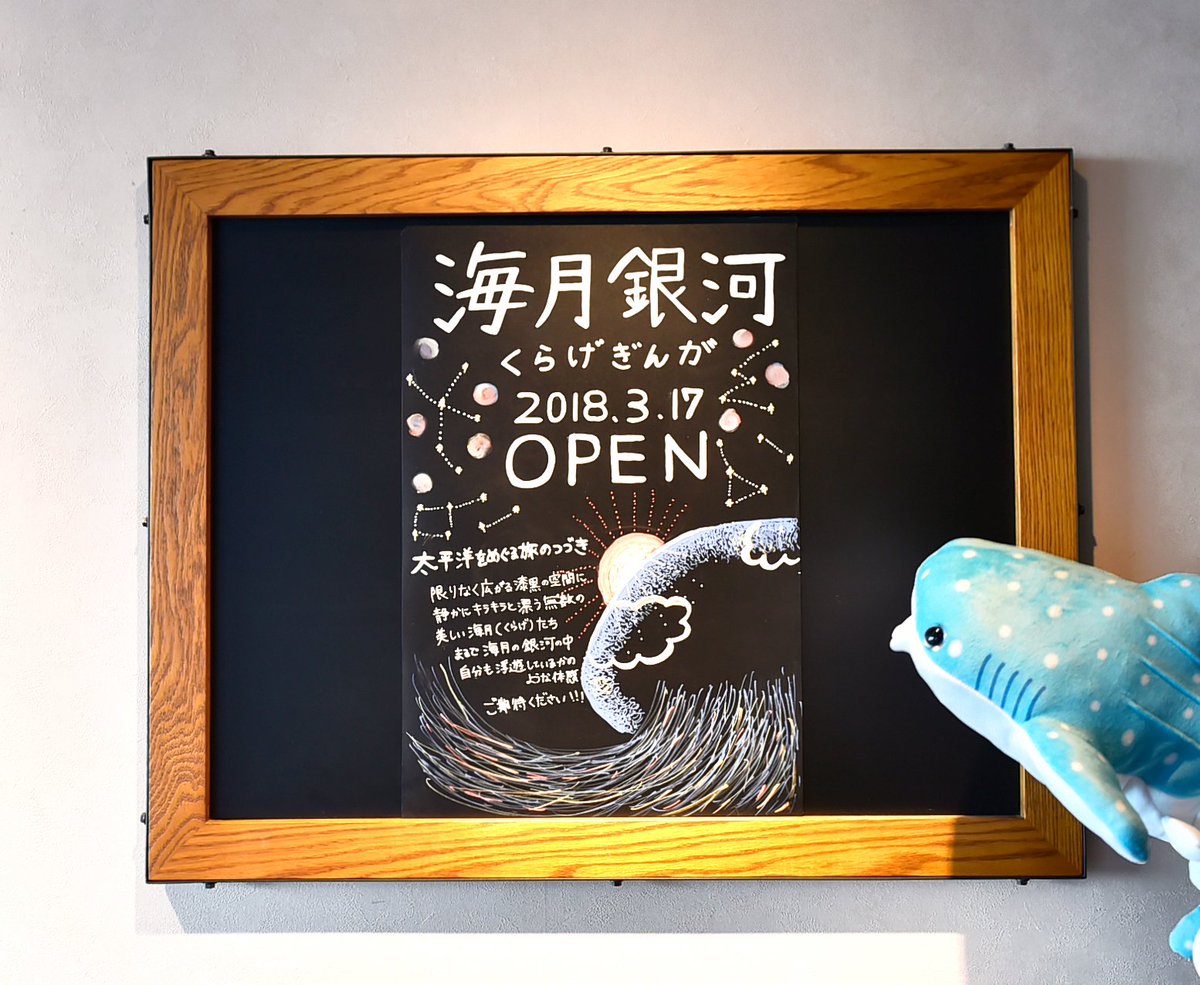 海月銀河
くらげぎんが
2018.3.17
OPEN
太平洋をめぐる旅のつづき
限りなく広がる漆黒の空間に
静かにキラキラと漂う無数の
美しい海月(くらげ)たち
まるで海月の銀河の中
自分も浮遊しているかの
ような体験
ご期待ください!!